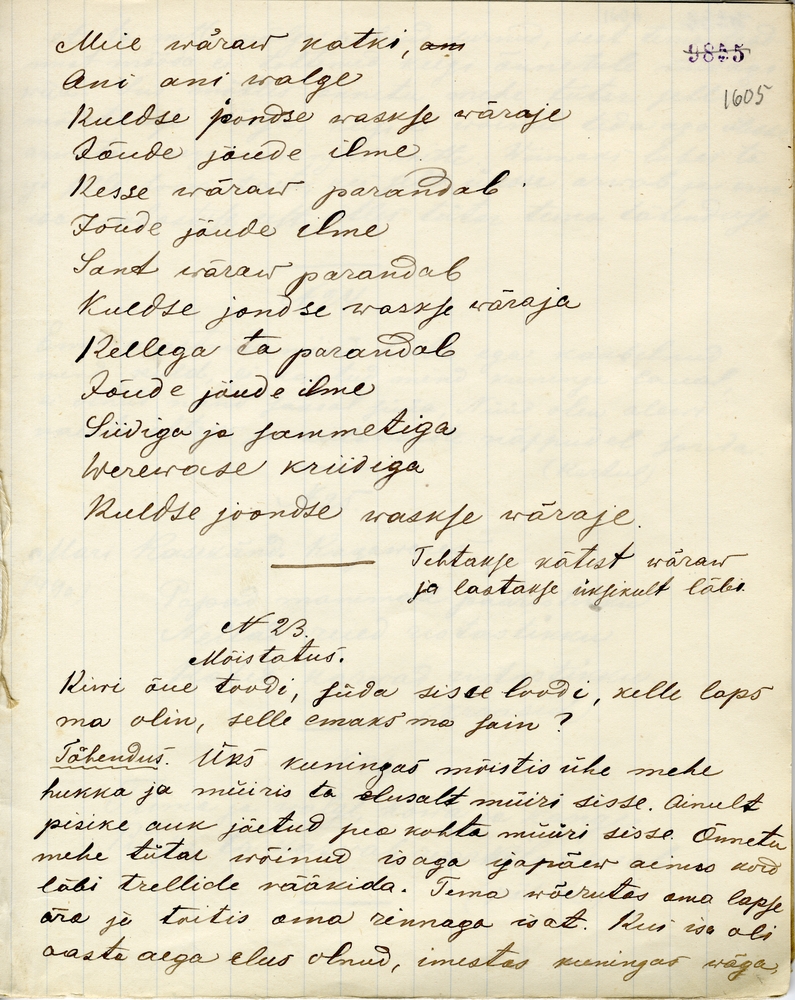 9855
1605
Meie wäraw katki, am
Ani ani walge
Kuldse jondse waskse wäraje
Jõude jõude ilme
Kesse wäraw parandab
Jõude jõude ilme
Sant wäraw parandab
Kuldse jondse waskse wäraja
Kellega ta parandab
Jõude jõude ilme
Siidiga ja sammetiga
Werewase kriidiga
Kuldse joondse waskse wäraje.
Tehtakse kätest wäraw
ja lastakse üksikult läbi.
N 23.
Mõistatus.
Kiwi õue toodi, süda sisse loodi, kelle laps
ma olin, selle emaks ma sain?
Tähendus. Üks kuningas mõistis ühe mehe
hukka ja müiris ta elusalt müiri sisse. Ainult
pisike auk jäetud pea kohta müüri sisse. Õnnetu
mehe tütar wõinud isaga igapäew ainus kord
läbi trellide rääkida. Tema wõerutas oma lapse
ära ja toitis oma rinnaga isat. Kui isa oli
aasta aega elus olnud, imestas kuningas wäga,